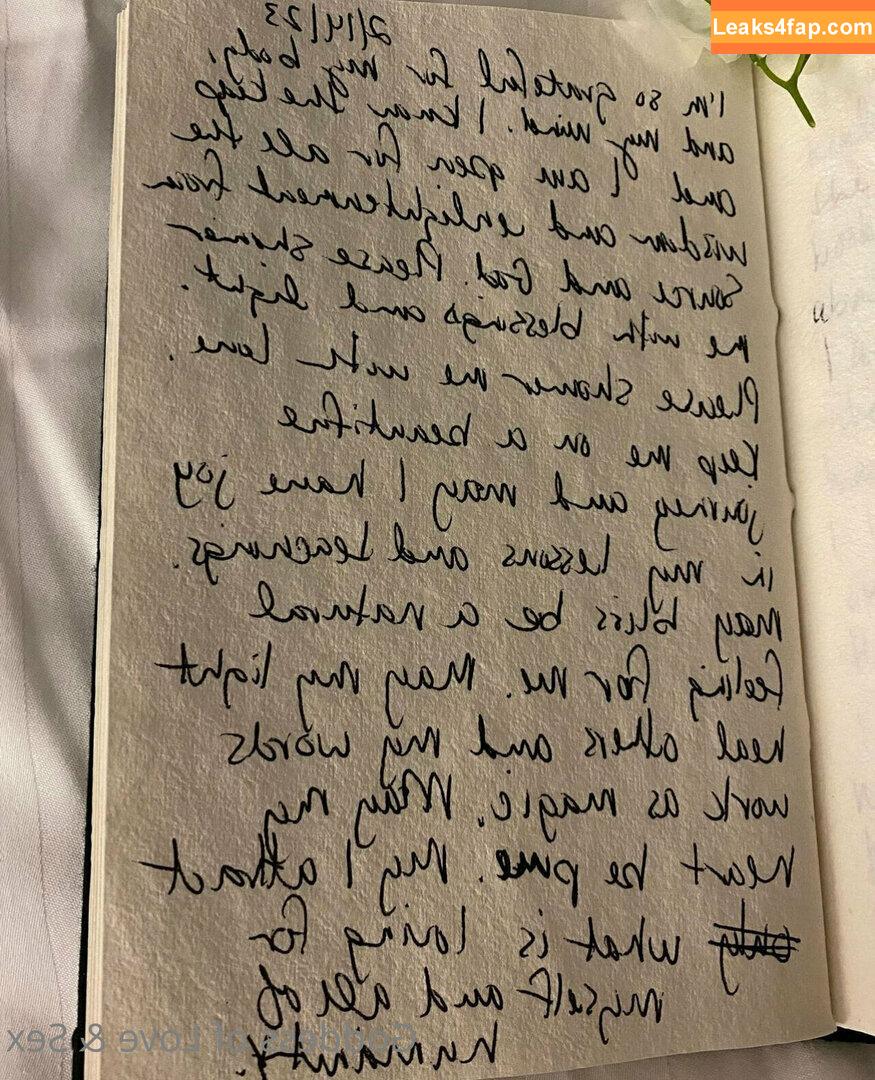 Leaks4fap.com
2/14/23
I'm so grateful for my body,
and my mind. I know the keep
and I am open for all the
wisdom and enlightenment from
Source and God. Please shower
me with blessings and light.
Please shower me with love.
Keep me on a beautiful
journey and may I have joy
in my lessons and teachings.
May bliss be a natural
feeling for me. May my light
heal others and my words
work as magic. May my
heart be pure. My I attract
only what is loving for
myself and all of
humanity.
Goddess of Love & Sex